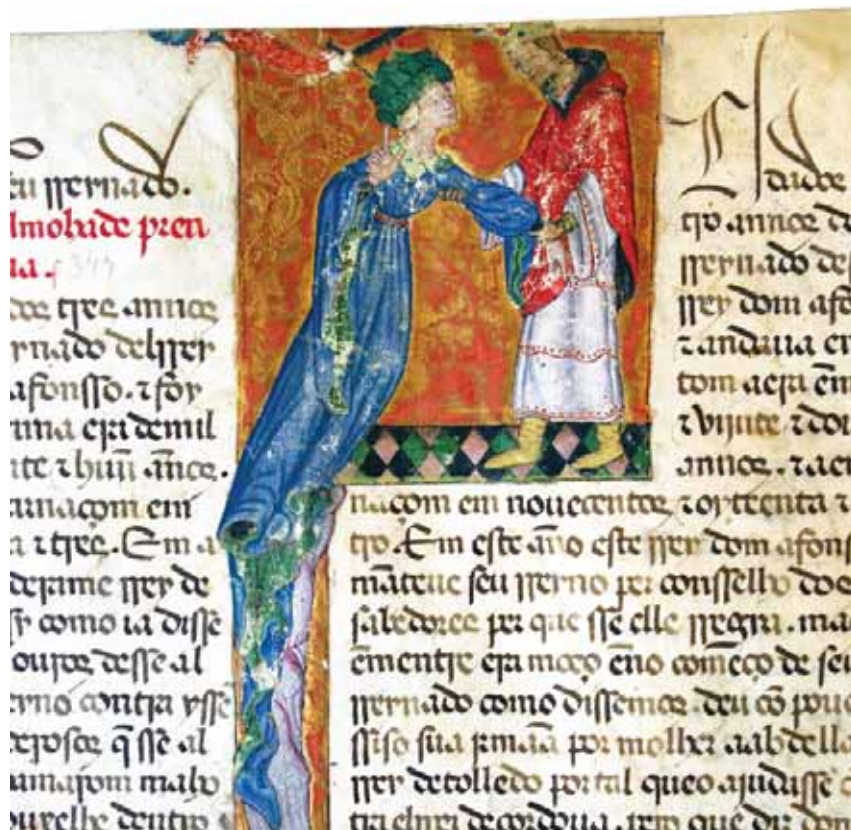 eu rreynado.
lmohade pren
ia. 344
dos tres annos
rnado delrrey
afonsso. ⁊ foy
nna era de mil
te ⁊ huũ ãnos.
arnaçom em
a ⁊ tres. Em a
derame rrey de
sy como ia disse
ouros desse al
erno contra ysse
erosos q̃ sse al
amarom maly
dentro
dados
tro annos do
rreynado de
rrey dom afo
⁊ andaua
tom a era em
⁊ vijnte ⁊ doı
annos. ⁊ a en
naçom em nouecentos ⁊ oyteenta ⁊
tro. Em este ãno este rrey dom afons
mãteue seu rreyno per conssello dos
sabedores per que sse elle rregia. mas
ementre era moço eno começo de seu
rreynado como dissemos. deu cõ pouc
ssiso sua jrmaã por molher a abdella
rrey de tolledo por tal que o ajudasse c
tra elrrei de cordoua. pero que diz dom